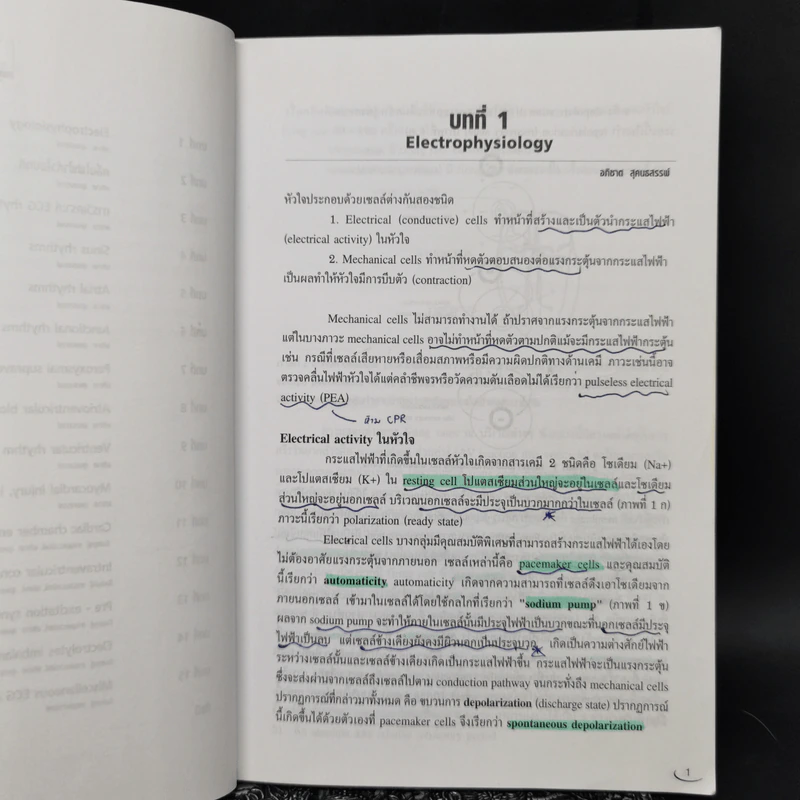 บทที่ 1
Electrophysiology
อภิชาต สุคนธสรรพ์
หัวใจประกอบด้วยเซลล์ต่างกันสองชนิด
1. Electrical (conductive) cells ทำหน้าที่สร้างและเป็นตัวนำกระแสไฟฟ้า
(electrical activity) ในหัวใจ
2. Mechanical cells ทำหน้าที่หดตัวตอบสนองต่อแรงกระตุ้นจากกระแสไฟฟ้า
เป็นผลทำให้หัวใจมีการบีบตัว (contraction)
Mechanical cells ไม่สามารถทำงานได้ ถ้าปราศจากแรงกระตุ้นจากกระแสไฟฟ้า
แต่ในบางภาวะ mechanical cells อาจไม่ทำหน้าที่หดตัวตามปกติแม้จะมีกระแสไฟฟ้ากระตุ้น
เช่น กรณีที่เซลล์เสียหายหรือเสื่อมสภาพหรือมีความผิดปกติทางด้านเคมี ภาวะเช่นนี้อาจ
ตรวจคลื่นไฟฟ้าหัวใจได้แต่คลำชีพจรหรือวัดความดันเลือดไม่ได้เรียกว่า pulseless electrical
activity (PEA)
CPR
Electrical activity ในหัวใจ
กระแสไฟฟ้าที่เกิดขึ้นในเซลล์หัวใจเกิดจากสารเคมี 2 ชนิดคือ โซเดียม (Na+)
และโปแตสเซียม (K+) ใน resting cell โปแตสเซียมส่วนใหญ่จะอยู่ในเซลล์และโซเดียม
ส่วนใหญ่จะอยู่นอกเซลล์ บริเวณนอกเซลล์จะมีประจุเป็นบวกมากกว่าในเซลล์ (ภาพที่ 1 ก)
ภาวะนี้เรียกว่า polarization (ready state)
Electrical cells บางกลุ่มมีคุณสมบัติพิเศษที่สามารถสร้างกระแสไฟฟ้าได้เองโดย
ไม่ต้องอาศัยแรงกระตุ้นจากภายนอก เซลล์เหล่านี้คือ pacemaker cells และคุณสมบัติ
นี้เรียกว่า automaticity automaticity เกิดจากความสามารถที่เซลล์ดึงเอาโซเดียมจาก
ภายนอกเซลล์ เข้ามาในเซลล์ได้โดยใช้กลไกที่เรียกว่า "sodium pump" (ภาพที่ 1 ข)
ผลจาก sodium pump จะทำให้ภายในเซลล์นั้นมีประจุไฟฟ้าเป็นบวกขณะที่นอกเซลล์มีประจุ
ไฟฟ้าเป็นลบ แต่เซลล์ข้างเคียงยังคงมีผิวนอกเป็นประจุบวก เกิดเป็นความต่างศักย์ไฟฟ้า
ระหว่างเซลล์นั้นและเซลล์ข้างเคียงเกิดเป็นกระแสไฟฟ้าขึ้น กระแสไฟฟ้าจะเป็นแรงกระตุ้น
ซึ่งจะส่งผ่านจากเซลล์ถึงเซลล์ไปตาม conduction pathway จนกระทั่งถึง mechanical cells
ปรากฏการณ์ที่กล่าวมาทั้งหมด คือ ขบวนการ depolarization (discharge state) ปรากฏการณ์
นี้เกิดขึ้นได้ด้วยตัวเองที่ pacemaker cells จึงเรียกว่า spontaneous depolarization
1